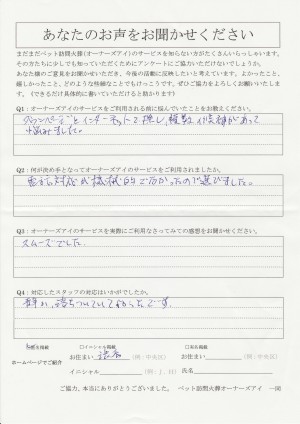 あなたのお声をお聞かせください
まだまだペット訪問火葬(オーナーズアイ)のサービスを知らない方がたくさんいらっしゃいます。
その方たちに少しでも知っていただくためにアンケートにご協力いただけないでしょうか。
あなた様のご意見をお聞かせいただき、今後の活動に反映したいと考えています。よかったこと、
嬉しかったこと、どのような些細なことでもけっこうです、ぜひご協力をよろしくお願いいたしま
す。(できるだけ具体的に書いていただけると助かります)
Q1:オーナーズアイのサービスをご利用される前に悩んでいたことをお教えください。
タウンページとインターネットで探し、複数、候補があって
悩みました。
Q2:何が決め手となってオーナーズアイのサービスをご利用されましたか。
電話の対応が
なかったので選びました。
Q3:オーナーズアイのサービスを実際にご利用なさってみての感想をお聞かせください。
スムーズでした。
Q4:対応したスタッフの対応はいかがでしたか。
落ちついていてよかったです。
□イニシャル掲載 □実名掲載
ホームページでご紹介
お住まい (例:中央区) お住まい (例:中央区)
イニシャル (例:J.H) 氏名
ご協力、本当にありがとうございました。 ペット訪問火葬オーナーズアイ 一同